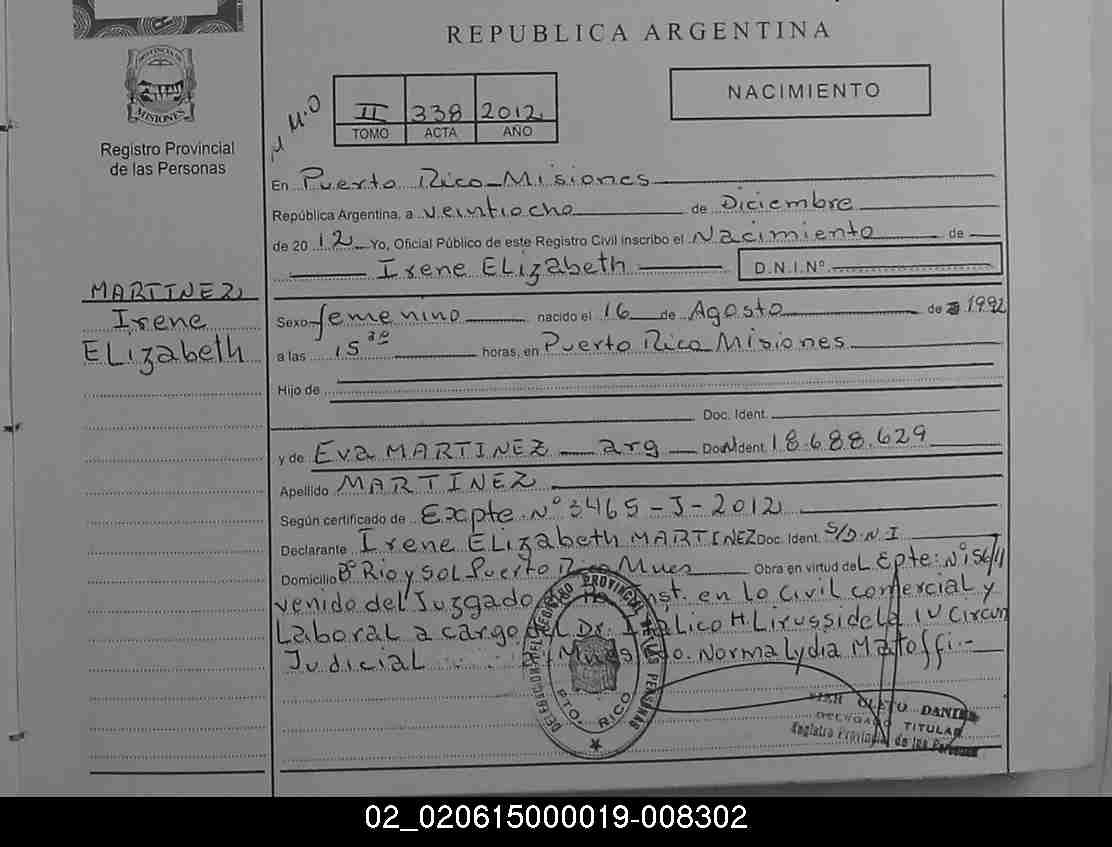 REPUBLICA ARGENTINA
PROVINCIA DE
MISIONES
Registro Provincial
de las Personas
II 338 2012
TOMO ACTA AÑO
NACIMIENTO
En Puerto Rico Misiones
República Argentina, a veintiocho de Diciembre
de 2012 Yo, Oficial Público de este Registro Civil inscribo el Nacimiento de
Irene ELizabeth D.N.I.Nº
MARTINEZ
Irene
ELizabeth
Sexo femenino nacido el 16 de Agosto de 1992
a las 15 30 horas, en Puerto Rico Misiones
Hijo de
Doc. Ident.
y de Eva MARTINEZ arg Doc. Ident. 18.688.629
Apellido MARTINEZ
Según certificado de Expte Nº 3465-J-2012
Declarante Irene ELizabeth MARTINEZ Doc. Ident. S/D.N.I
Domicilio Bº Rio y SOL Puerto Obra en virtud de L Epte: Nº
venido del Juzgado Inst. en lo Civil comercial y
Laboral a cargo del Dr. H. de la IV Circun
Judicial Norma Lydia
REGISTRO PROVINCIAL DE LAS PERSONAS
PTO. RICO
DANIEL
DELEGADO TITULAR
Registro Provincial de las Personas
02_020615000019-008302